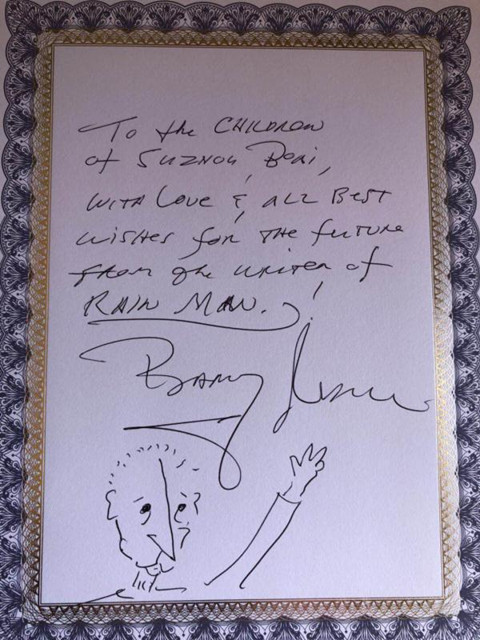 To the CHILDREN
of SUZHOU BOAI,
WITH LOVE & ALL BEST
WISHES for THE future
FROM the WRITER of
RAIN MAN.!
BARRY